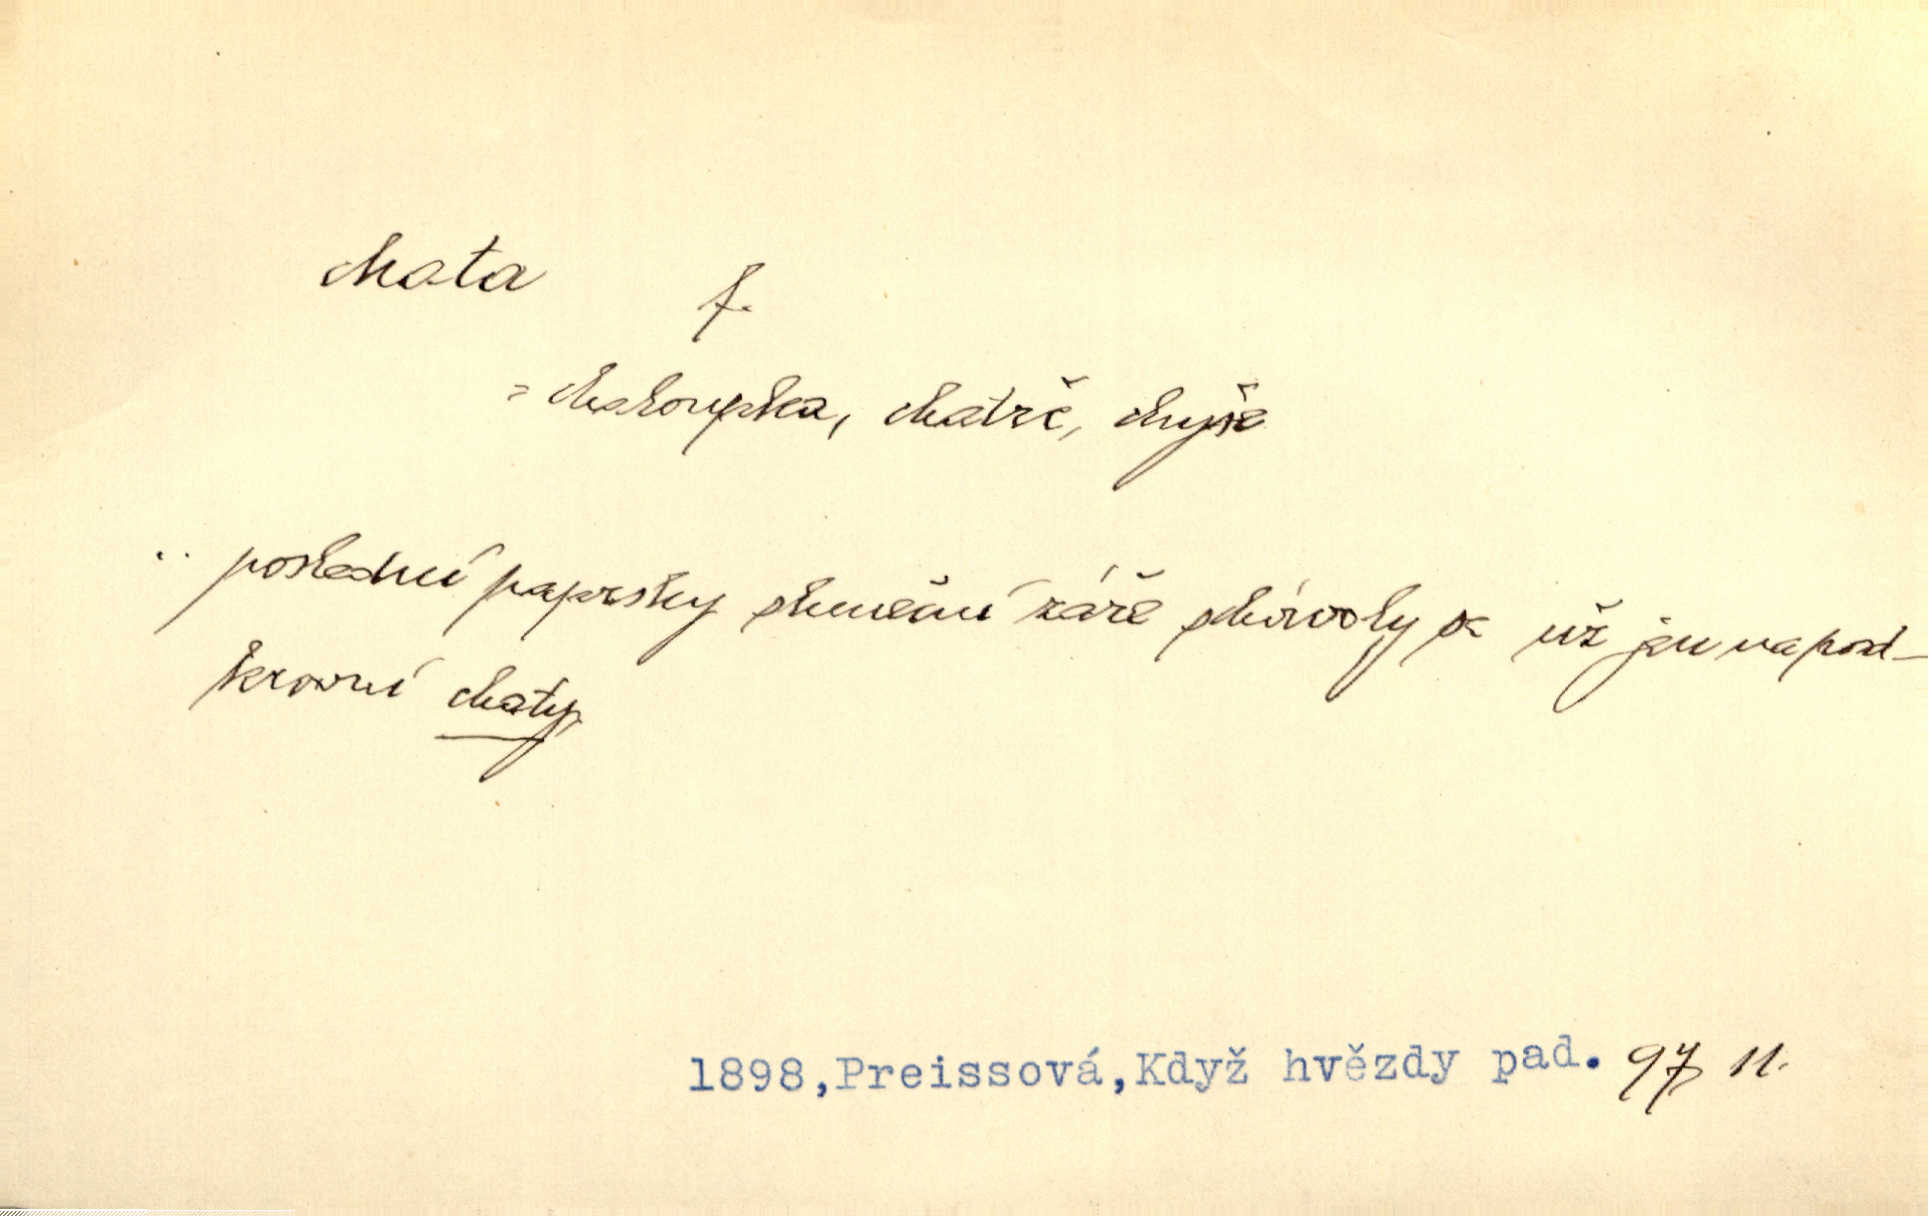 chata
f.
= chaloupka, chatrč, chyše
.. poslední paprsky sluneční záře schovaly se už jen na pod-
krovní chaty
1898,Preissová,Když hvězdy pad. 97 11.